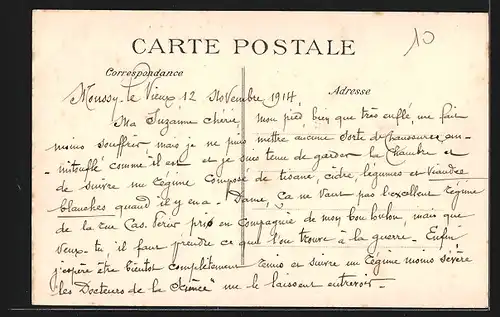 10
CARTE POSTALE
Correspondance
Adresse
Moussy-le Vieux 12 Novembre 1914
Ma Suzanne chérie, mon pied bien que très enflé me fait
moins souffrir mais je ne puis mettre aucune sorte de chaussures em-
-mitouflé comme il est et je suis tenu de garder la chambre et
de suivre un régime composé de tisane, cidre, légumes et viandes
blanches quand il y en a - Dame, ça ne vaut pas l'excellent régime
de la rue Cas. Périer pris en compagnie de mon bon loulou, mais que
veux-tu, il faut prendre ce que l'on trouve à la guerre - Enfin
j'espère être bientôt complètement remis et suivre un régime moins sévère
"les Docteurs de la Science" me le laissent entrevoir -